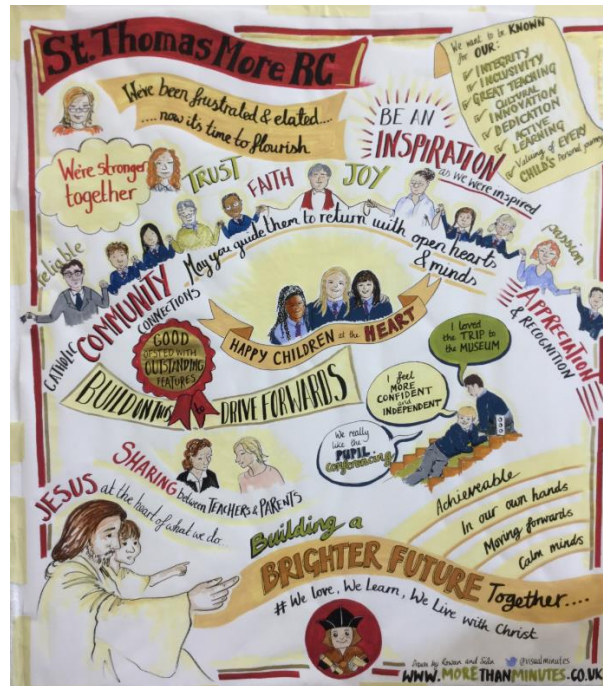 St. Thomas More RC
We've been frustrated & elated....
....now it's time to flourish
We want to be KNOWN
for OUR:
INTEGRITY
INCLUSIVITY
GREAT TEACHING
CULTURAL
INNOVATION
DEDICATION
ACTIVE
LEARNING
Valuing of EVERY
CHILD'S Personal journey
BE AN
INSPIRATION
as we were inspired
We're stronger
together
TRUST
FAITH
JOY
reliable
passion
May you guide them to return with open hearts
& minds
CATHOLIC
COMMUNITY
CONNECTIONS
APPRECIATION
& RECOGNITION
HAPPY CHILDREN at the HEART
GOOD
OFSTED WITH
OUTSTANDING
FEATURES
BUILD ON THIS to DRIVE FORWARDS
I loved
the TRIP to
the MUSEUM
I feel
MORE
CONFIDENT
and
INDEPENDENT
We really
like the
PUPIL
conferencing
SHARING between TEACHERS & PARENTS
JESUS at the heart of what we do...
Achieveable
In our own hands
Moving forwards
Calm minds
Building a
BRIGHTER FUTURE Together....
# We love, We Learn, We Live with Christ
Drawn by Rowan and Siân @visualminutes
WWW.MORETHANMINUTES.CO.UK